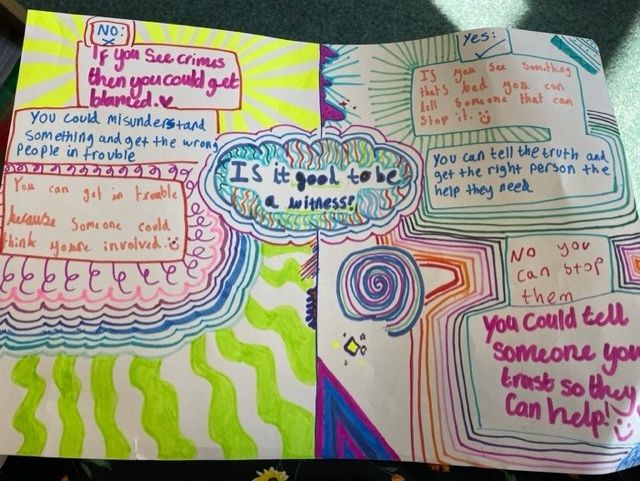 NO:
If you see crimes
then you could get
blamed.
You could misunderstand
something and get the wrong
People in trouble
You can get in trouble
because someone could
think you're involved.
Is it good to be
a witness?
Yes:
If you see something
that's bad you can
tell someone that can
stop it.
You can tell the truth and
get the right person the
help they need
No you
can stop
them
You could tell
someone you
trust so they
can help!